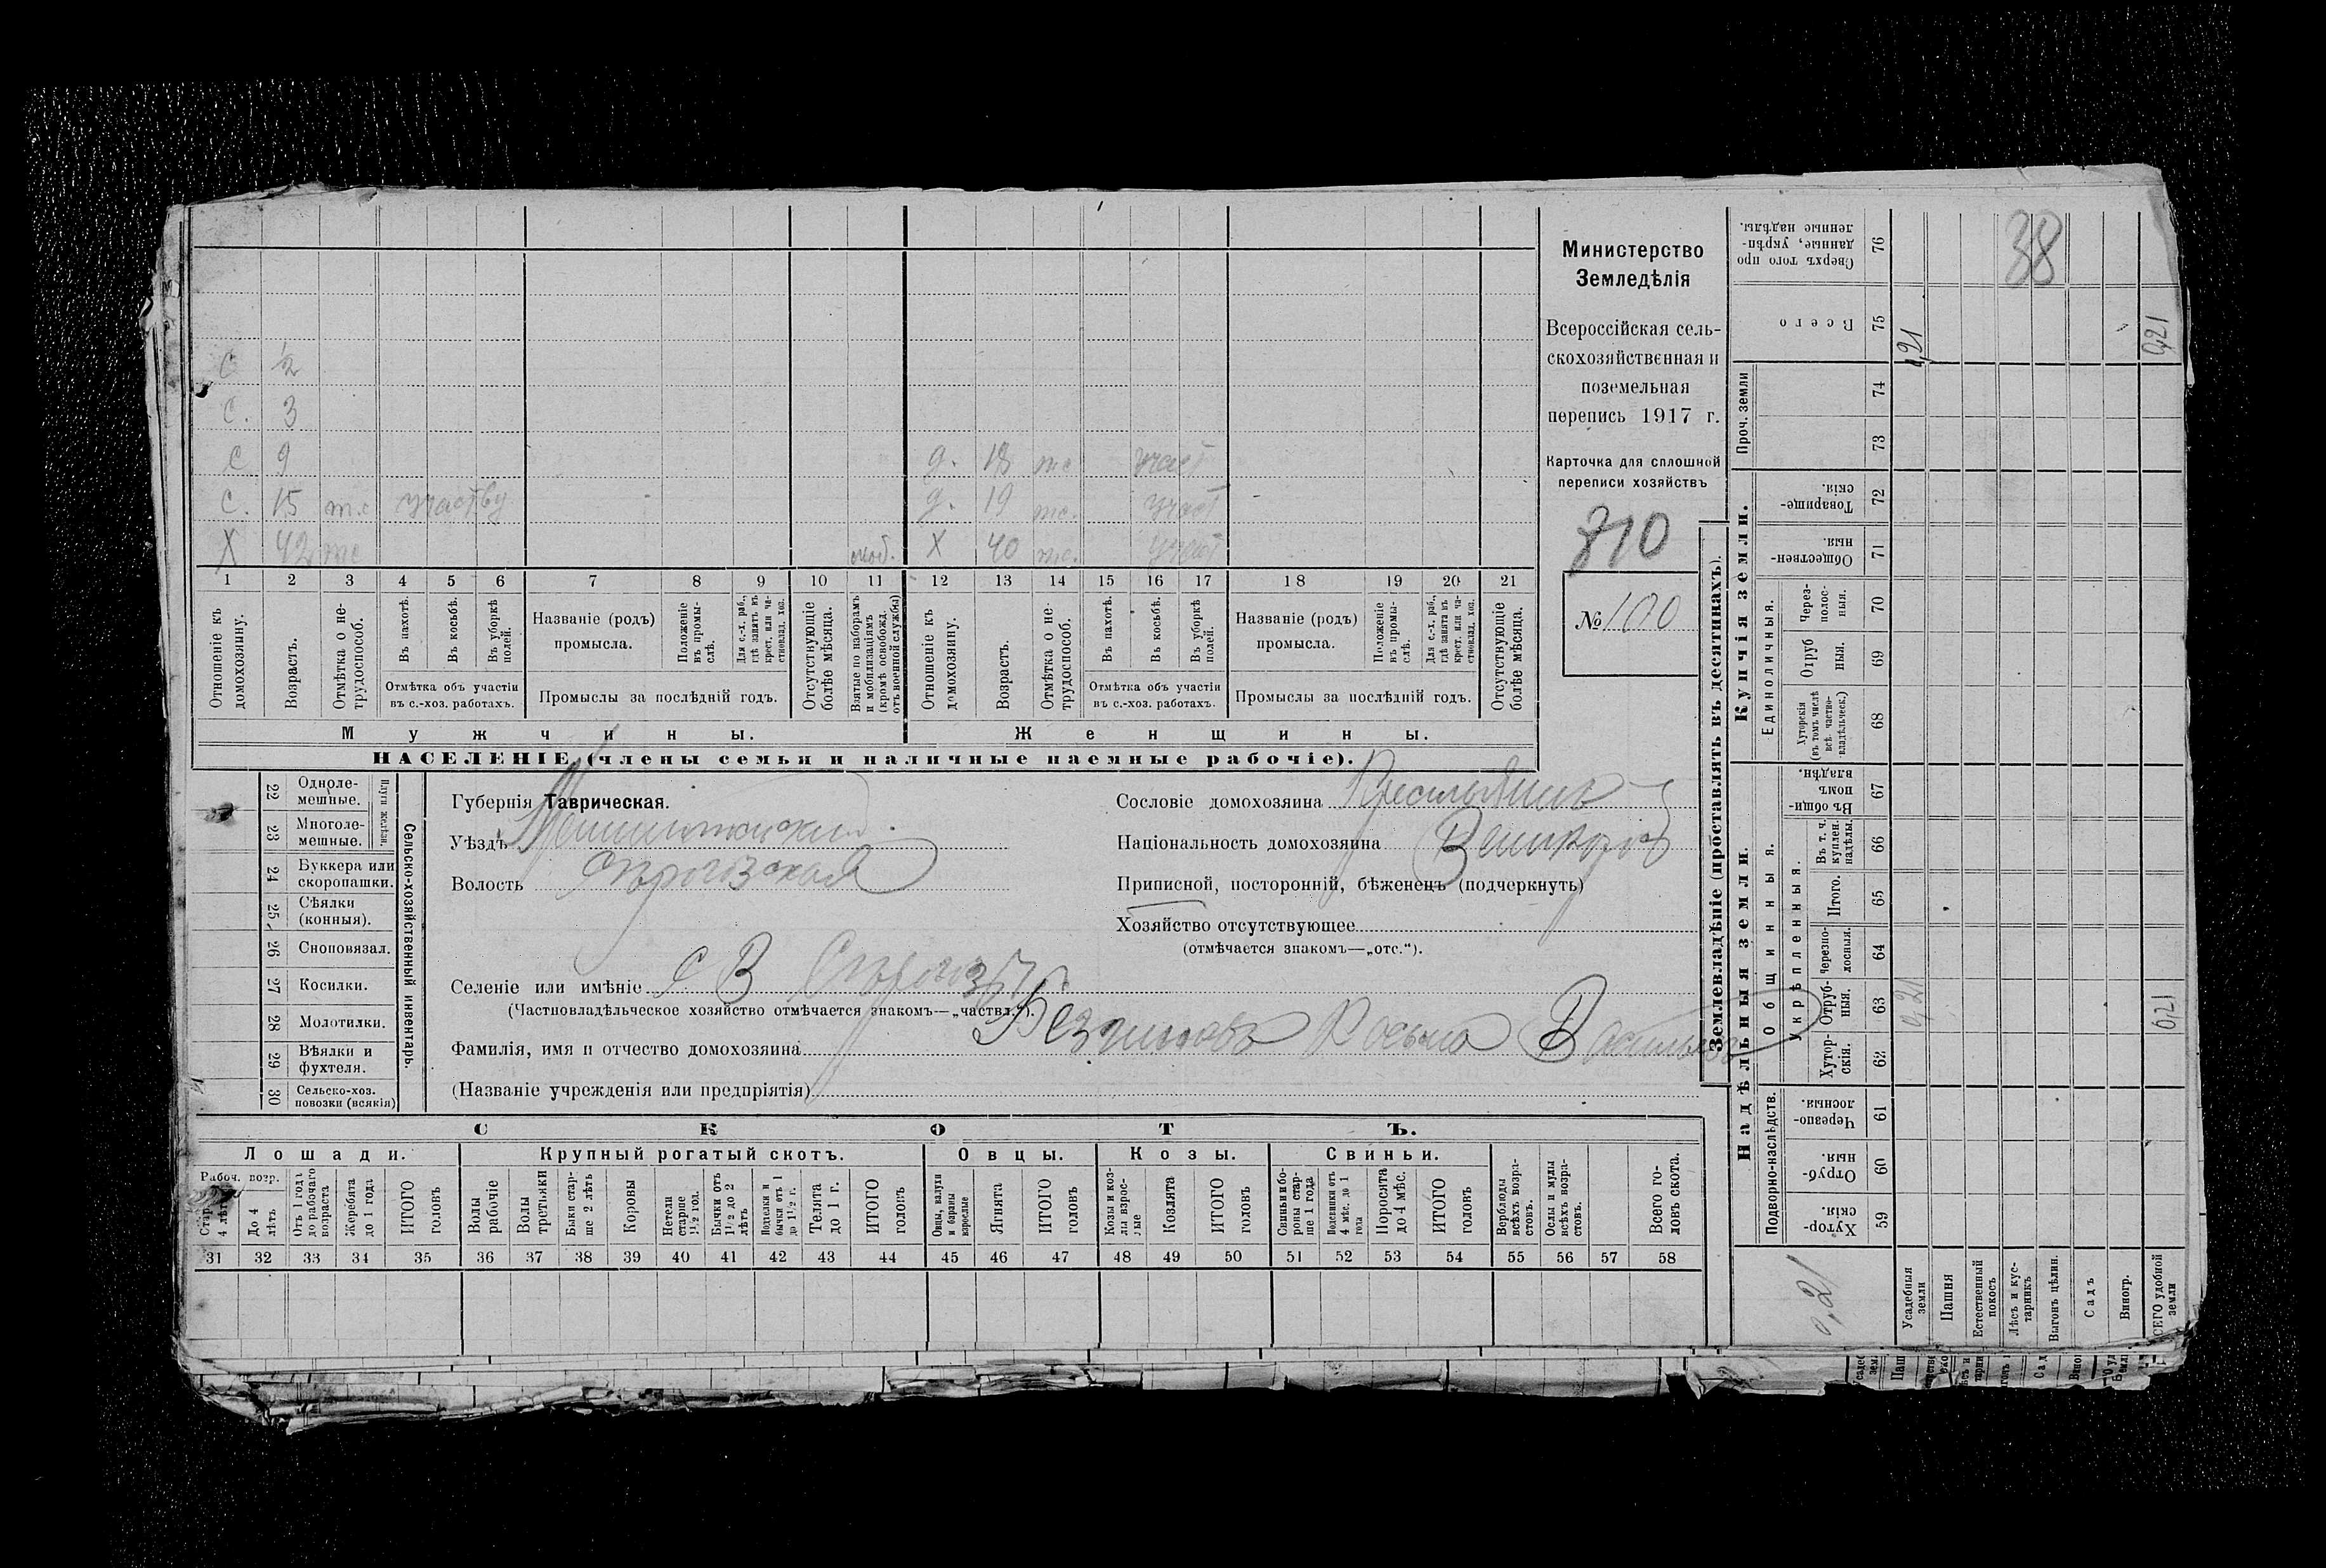 С ½
С. 3
С 9 д. 18 тс участ
С. 15 тс участву д. 19 тс. участ
Х 42 тс моб. Х 40 тс. участ
1 2 3 4 5 6 7 8 9 10 11 12 13 14 15 16 17 18 19 20 21
Отношеніе къ домохозяину.
Возрастъ.
Отмѣтка о нетрудоспособ.
Въ пахотѣ.
Въ косьбѣ.
Въ уборкѣ полей.
Отмѣтка объ участіи въ с.-хоз. работахъ.
Названіе (родъ) промысла.
Положеніе въ промыслѣ.
Для с.-х. раб., гдѣ занятъ въ крест. или частновлад. хоз.
Промыслы за послѣдній годъ.
Отсутствующіе болѣе мѣсяца.
Взятые по наборамъ и мобилизаціямъ (кромѣ освобожд. отъ военной службы)
Отношеніе къ домохозяину.
Возрастъ.
Отмѣтка о нетрудоспособ.
Въ пахотѣ.
Въ косьбѣ.
Въ уборкѣ полей.
Отмѣтка объ участіи въ с.-хоз. работахъ.
Названіе (родъ) промысла.
Положеніе въ промыслѣ.
Для с.-х. раб., гдѣ занята въ крест. или частновлад. хоз.
Промыслы за послѣдній годъ.
Отсутствующіе болѣе мѣсяца.
Мужчины. Женщины.
НАСЕЛЕНІЕ (члены семьи и наличные наемные рабочіе).
Министерство
Земледѣлія
Всероссійская сель-
скохозяйственная и
поземельная
перепись 1917 г.
Карточка для сплошной
переписи хозяйствъ
710
№ 100
Сельско-хозяйственный инвентарь.
Плуги желѣзн.
22 Одноле-
мешные.
23 Многоле-
мешные.
24 Буккера или
скоропашки.
25 Сѣялки
(конныя).
26 Сноповязал.
27 Косилки.
28 Молотилки.
29 Вѣялки и
фухтеля.
30 Сельско-хоз.
повозки (всякія)
Губернія Таврическая.
Уѣздъ Мелитопольскій
Волость Сѣрогозская
Селеніе или имѣніе с В Сѣрогозы
(Частновладѣльческое хозяйство отмѣчается знакомъ—„частвл.").
Фамилія, имя и отчество домохозяина Косьма Васильев
(Названіе учрежденія или предпріятія)
Сословіе домохозяина Крестьянинъ
Національность домохозяина Великор
Приписной, посторонній, бѣженецъ (подчеркнуть)
Хозяйство отсутствующее
(отмѣчается знакомъ—„отс.").
СКОТЪ.
Лошади. Крупный рогатый скотъ. Овцы. Козы. Свиньи.
Рабоч. возр.
До 4 лѣтъ
Отъ 1 года до рабочаго возраста
Жеребята до 1 года
ИТОГО головъ
Волы рабочіе
Волы третьяки
Быки старше 2 лѣтъ
Коровы
Нетели старше 1½ год.
Бычки отъ 1½ до 2 лѣтъ
Подтелки и бычки отъ 1 до 1½ г.
Телята до 1 г.
ИТОГО головъ
Овцы, валухи и бараны взрослые
Ягнята
ИТОГО головъ
Козы и козлы взрослые
Козлята
ИТОГО головъ
Свиньи и боровы старше 1 года
Подсвинки отъ 4 мѣс. до 1 года
Поросята до 4 мѣс.
ИТОГО головъ
Верблюды всѣхъ возрастовъ.
Ослы и мулы всѣхъ возрастовъ.
Всего головъ скота.
31 32 33 34 35 36 37 38 39 40 41 42 43 44 45 46 47 48 49 50 51 52 53 54 55 56 57 58
Землевладѣніе (проставлять въ десятинахъ).
Надѣльныя земли. Купчія земли.
Подворно-наслѣдств.
Хуторскія. 59
Отрубныя. 60
Черезполосныя. 61
Общинныя.
Укрѣпленныя.
Хуторскія. 62
Отрубныя. 63
Черезполосныя. 64
Итого. 65
Въ т. ч. куплен. надѣлы. 66
Въ общинномъ владѣн. 67
Единоличныя.
Хуторскія (въ томъ числѣ всѣ частновладѣльческ.) 68
Отрубныя. 69
Черезполосныя. 70
Общественныя. 71
Товарищескія. 72
Проч. земли
73
74
Всего 75
Сверхъ того проданные, укрѣпленные надѣлы. 76
Усадебныя земли
Пашня
Естественный покосъ
Лѣсъ и кустарникъ
Выгонъ цѣлин.
Садъ
Виногр.
ВСЕГО удобной земли
0,21
0,21
0,21
0,21
0,21
38